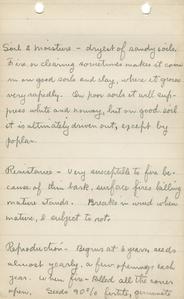 Soil & moisture - dryest of sandy soils.
Fire or clearing sometimes makes it come
in on good soils and clay, where it grows
very rapidly. On poor soils it will sup-
press white and norway, but on good soil
it is ultimately driven out, except by
poplar.
Resistance - Very susceptible to fire be-
cause of thin bark, surface fires killing
mature stands. Breaks in wind when
mature, & subject to rot.
Reproduction - Begins at 6 years, seeds
almost yearly, a few openings each
year. When fire-killed all the cones
open. Seeds 90% fertile, germinate